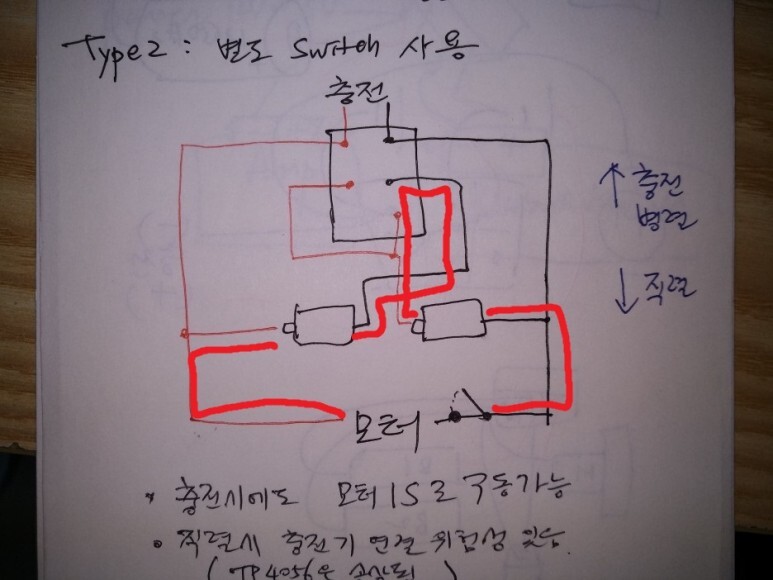 Type 2 : 별도 Switch 사용
충전
↑ 충전
병렬
↓ 직렬
모터
• 충전시에도 모터 1S로 구동가능
• 직렬시 충전기 연결 위험성 있음.
( TP4056은 손상됨 )